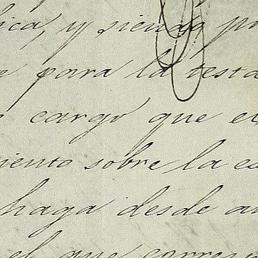 ica, y siendo pr
para la resta
cargo que e
iento sobre la ca
haga desde a
el que corres